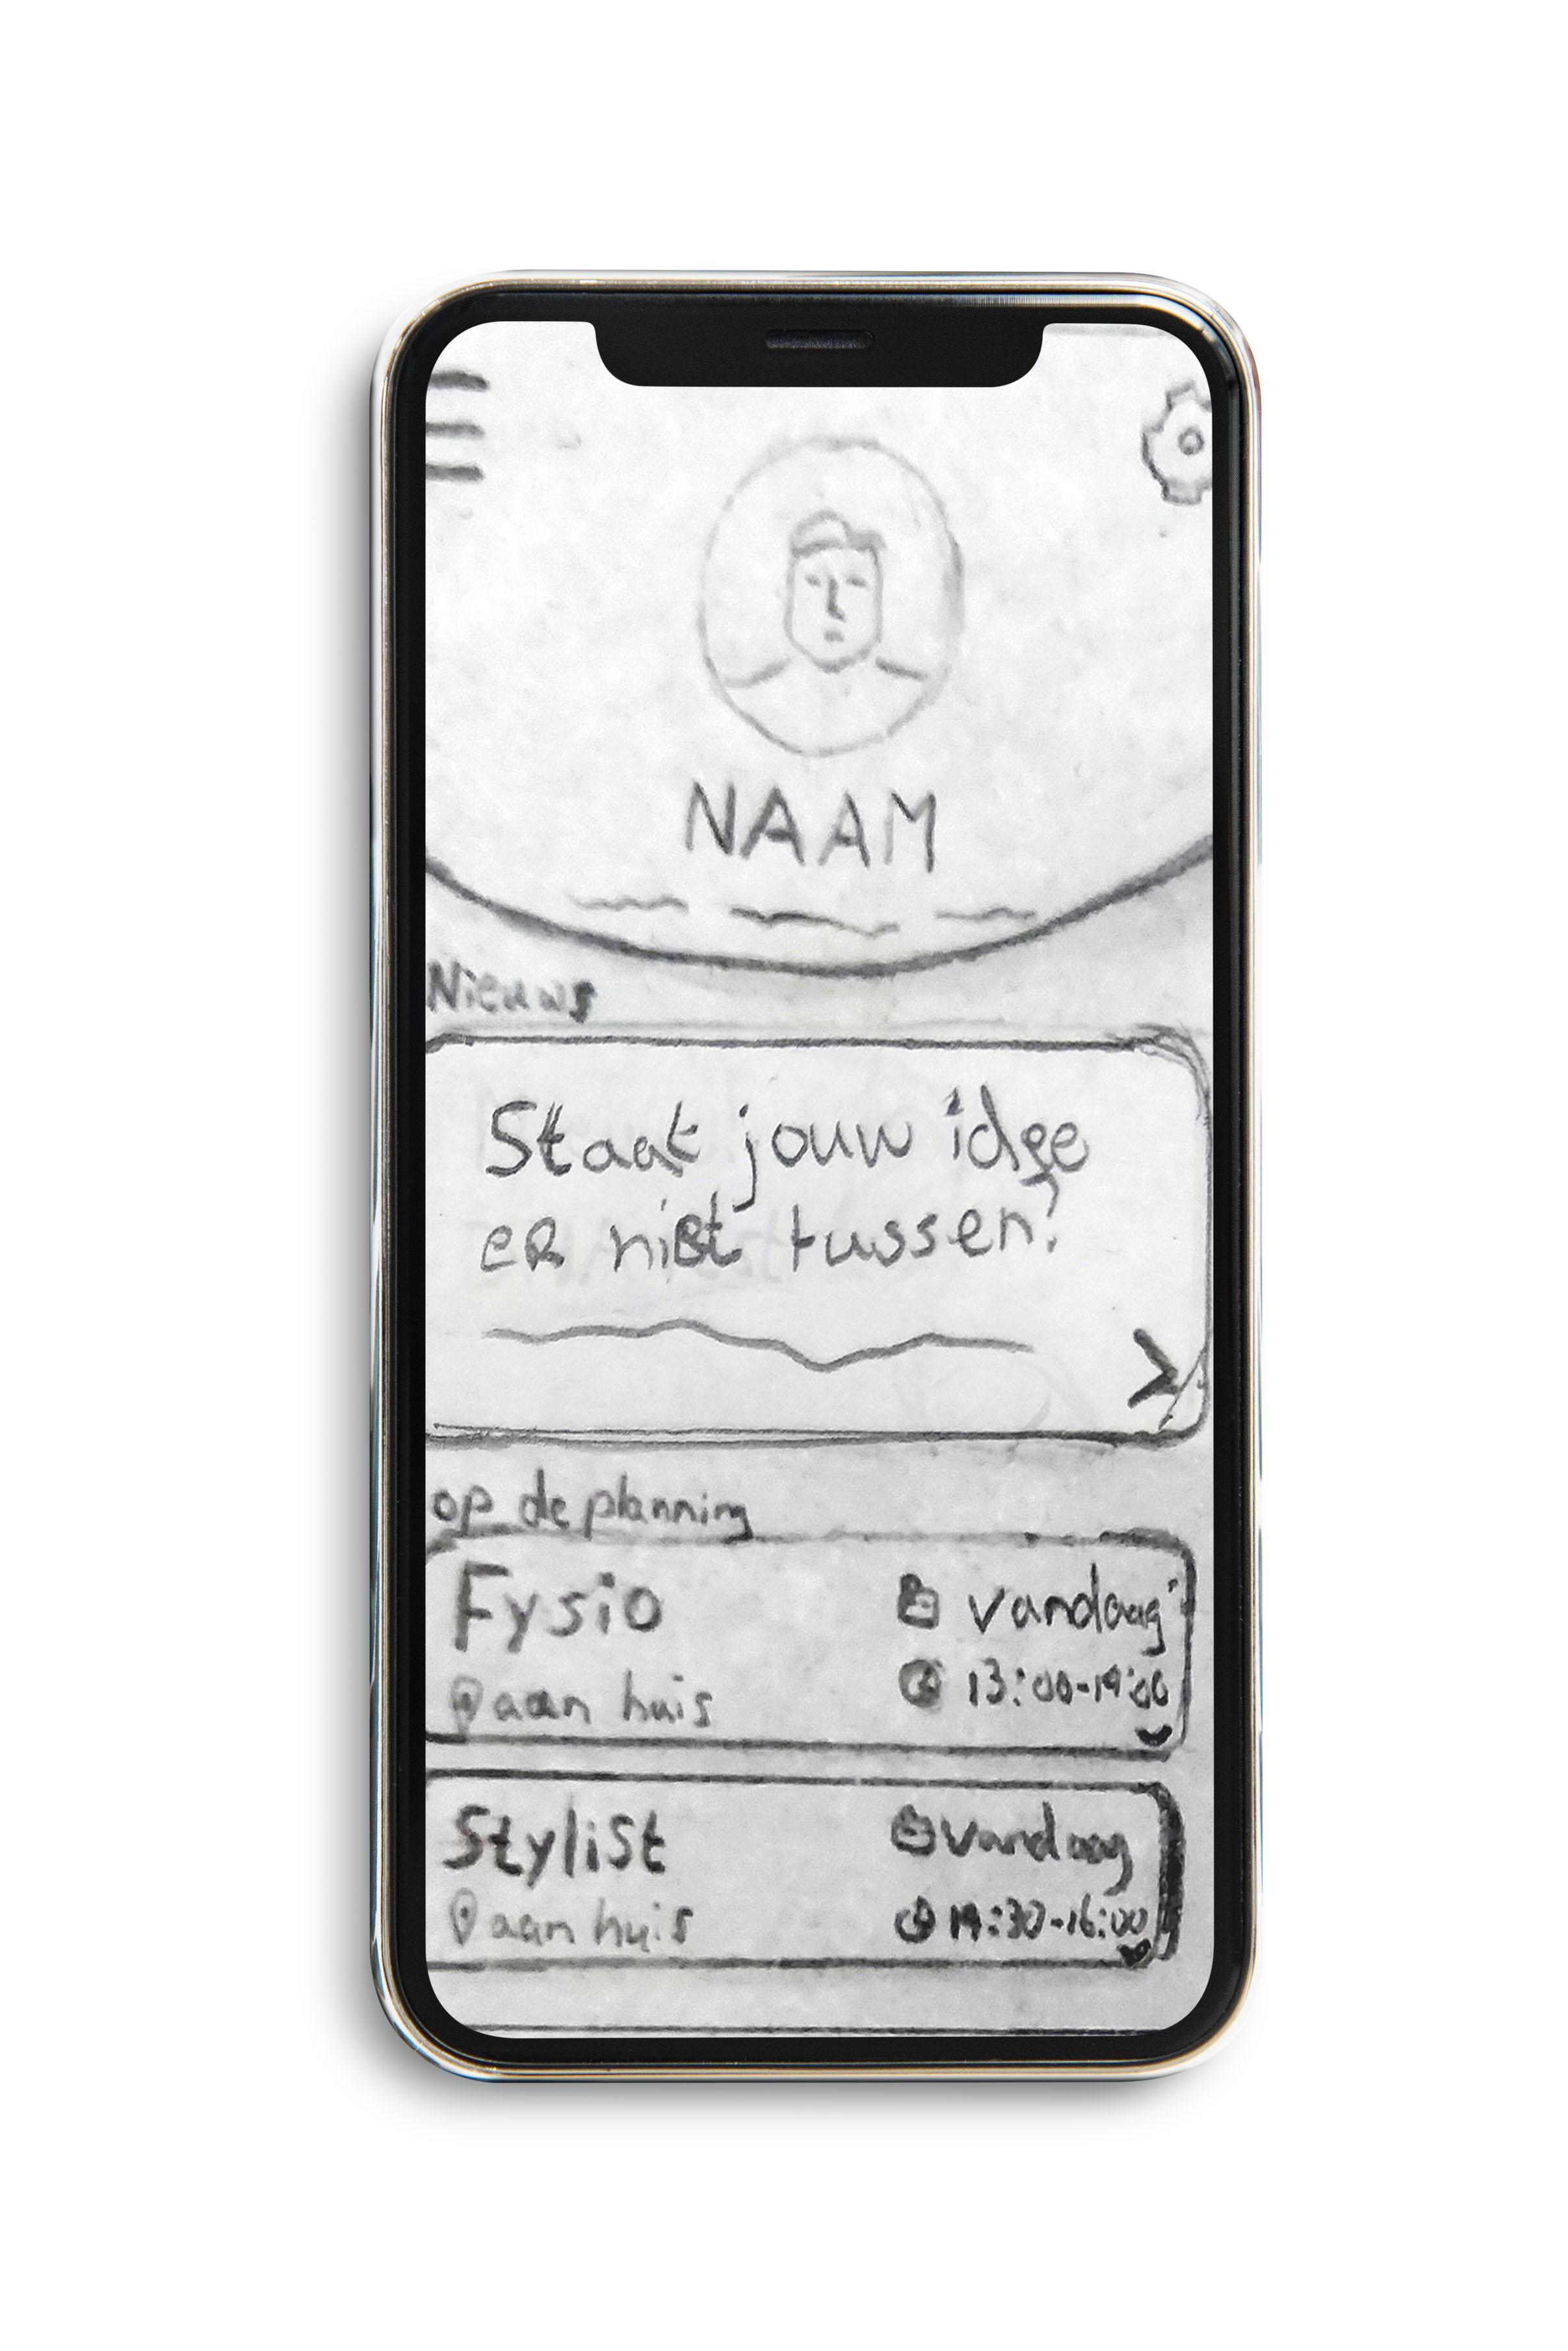 NAAM
Nieuws
Staat jouw idee
er niet tussen?
op de planning
Fysio
vandaag
aan huis
13:00-14:00
Stylist
vandaag
aan huis
14:30-16:00